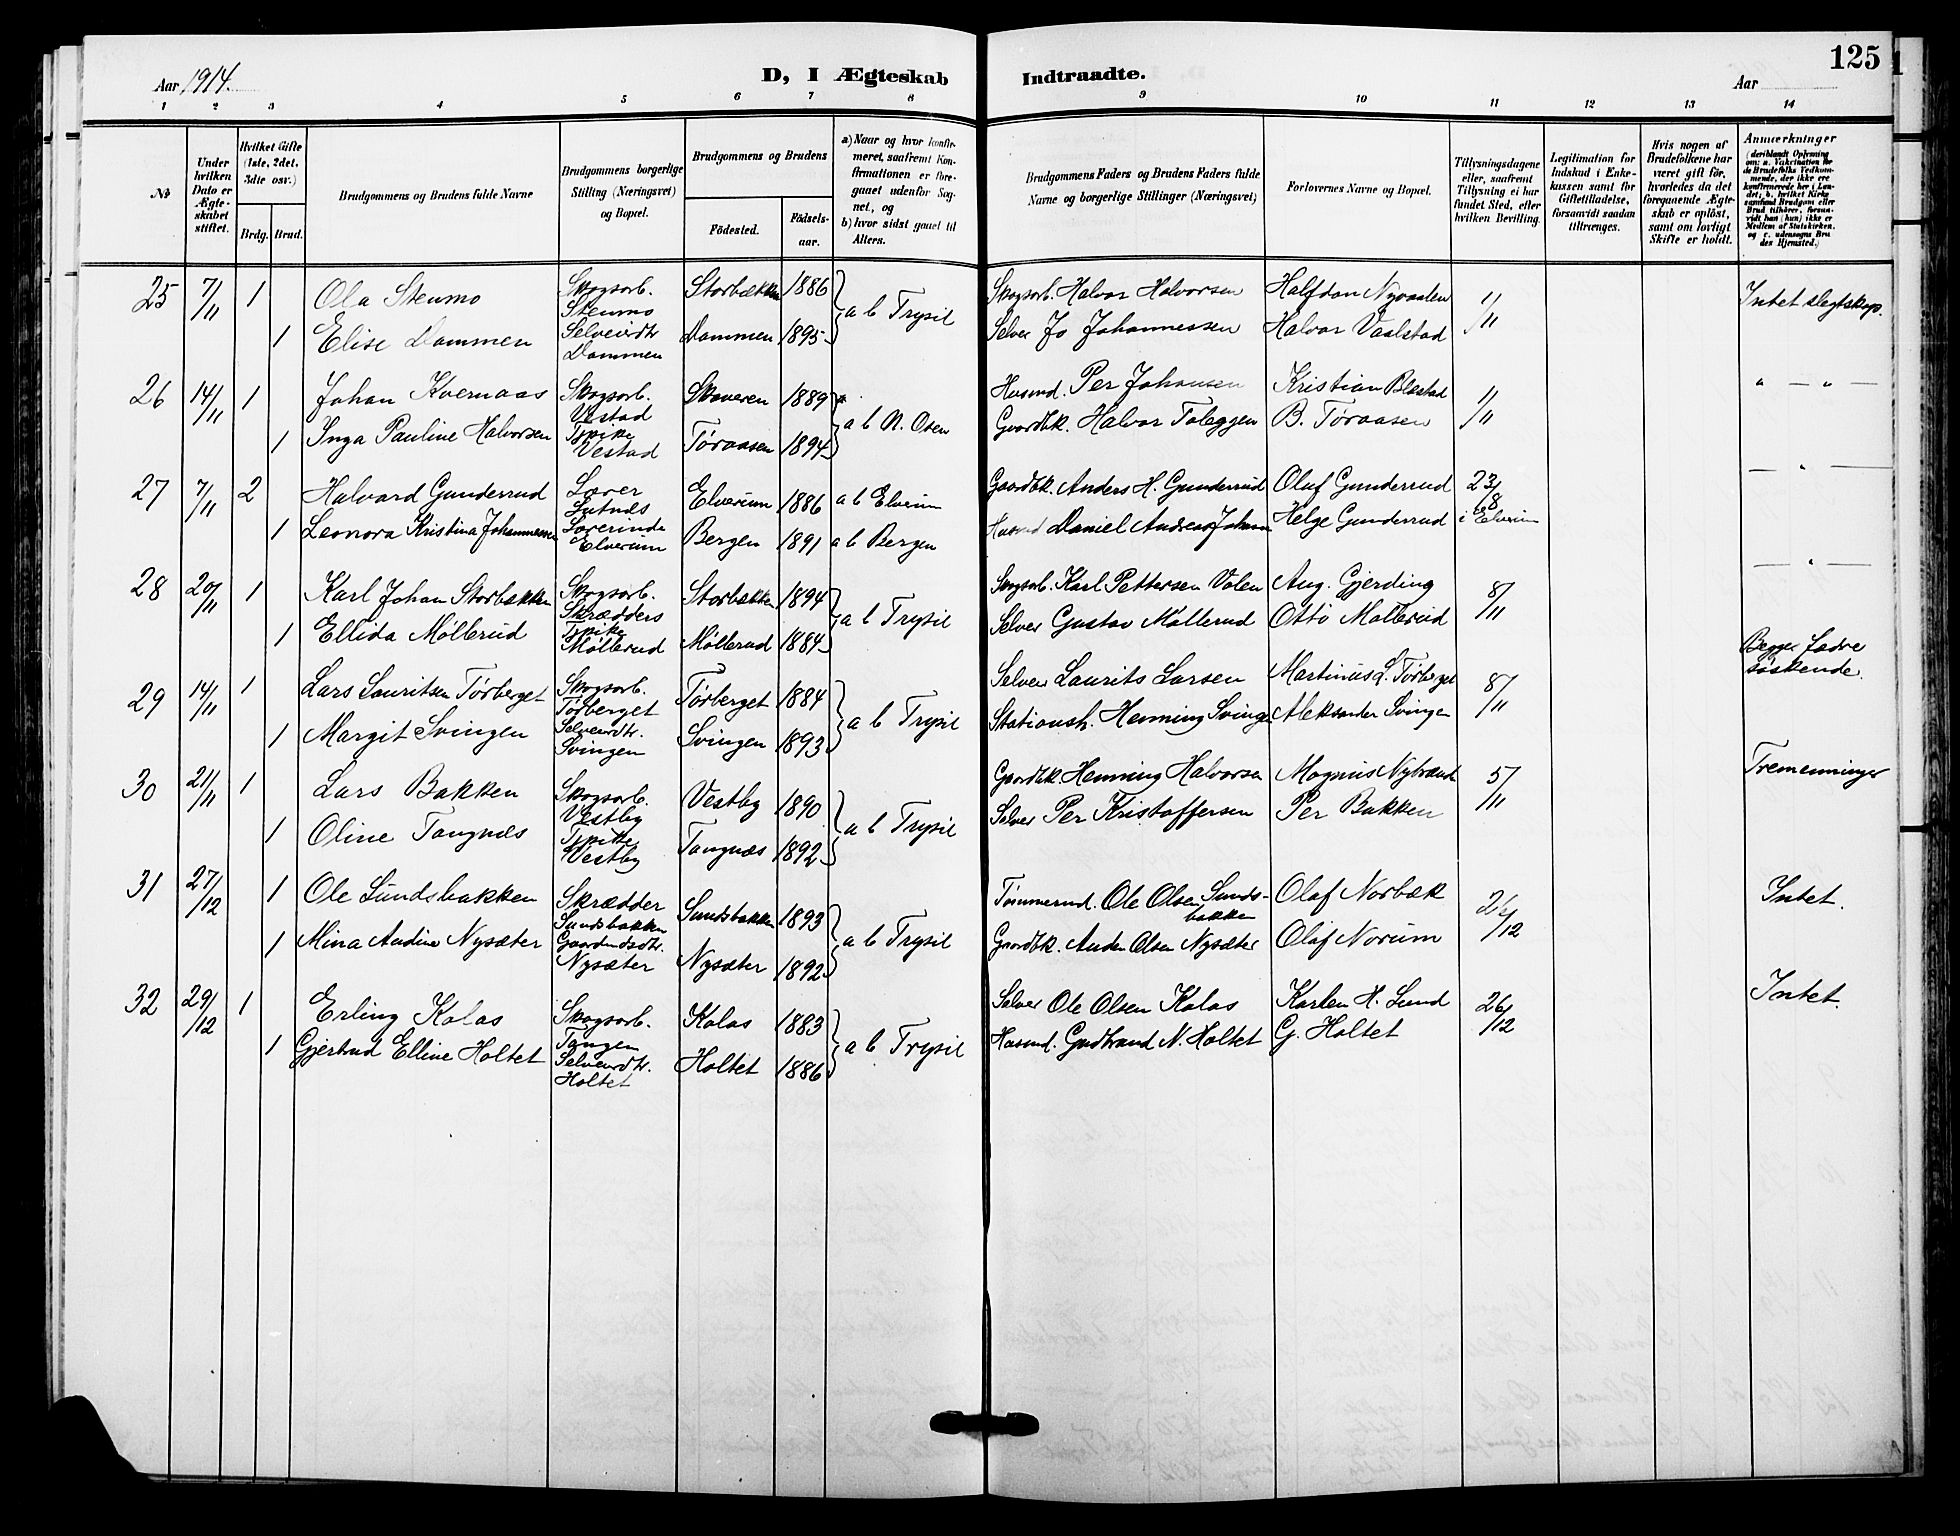 125
Aar 1914.
D, I Ægteskab Indtraadte.
Aar
1 2 3 4 5 6 7 8 9 10 11 12 13 14
№
Under hvilken Dato er Ægteskabet stiftet.
Hvilket Gifte (1ste, 2det, 3die osv.)
Brdg. Brud.
Brudgommens og Brudens fulde Navne
Brudgommens borgerlige Stilling (Næringsvei) og Bopæl.
Brudgommens og Brudens
Födested. Födselsaar.
a) Naar og hvor konfirmeret, saafremt Konfirmationen er foregaaet udenfor Sognet, og
b) hvor sidst gaaet til Alters.
Brudgommens Faders og Brudens Faders fulde Navne og borgerlige Stillinger (Næringsvei)
Forlovernes Navne og Bopæl.
Tillysningsdagene eller, saafremt Tillysning ei har fundet Sted, efter hvilken Bevilling.
Legitimation for Indskud i Enkekassen samt for Giftetilladelse, forsaavidt saadan tiltrænges.
Hvis nogen af Brudefolkene har været gift för, hvorledes da det foregaaende Ægteskab er oplöst, samt om lovligt Skifte er holdt.
Anmærkninger
(deriblandt Oplysning om: a. Vakcination for de Brudefolks Vedkommende, der ikke ere konfirmerede her i Landet; b. hvilket Kirkesamfund Brudgom eller Brud tilhörer, forsaavidt han (hun) ikke er Medlem af Statskirken. og c. udensogns Brudes Hjemsted.)
25 7/11 1 Ola Stenmo Skogsarb. Stenmo Storbækken 1886 a b Trysil Skogsarb. Halvor Halvorsen Halfdan Nyvaalen 1/11 Intet slegtskap.
1 Elise Dammen Selveierdtr. Dammen Dammen 1895 Selveier Jo Johannessen Halvor Vaalstad
26 14/11 1 Johan Kvernaas Skogsarb. Vestad Skaveren 1889 a b N. Osen Husmd. Per Johansen Kristian Blæstad 1/11 " — " —
1 Inga Pauline Halvorsen Tpike Vestad Töraasen 1894 Gaardbk. Halvor Toleggen B. Töraasen
27 7/11 2 Halvard Gunderrud Lærer Lutnæs Elverum 1886 a b Elverum Gaardbk. Anders H. Gunderrud Olaf Gunderrud 23/8 i Elverum — " —
1 Leonora Kristina Johannessen Lærerinde Elverum Bergen 1891 a b Bergen Husmd Daniel Andreas Johann Helge Gunderrud
28 20/11 1 Karl Johan Storbækken Skogsarb. Skrædders Storbækken 1894 a b Trysil Skogsarb. Karl Pettersen Volen Aug. Gjerding 8/11 — " —
1 Ellida Möllerud Tpike Möllerud Möllerud 1884 Selveier Gustav Möllerud Otto Mollerud
29 14/11 1 Lars Lauritsen Törberget Skogsarb. Törberget Törberget 1884 a b Trysil Selveier Laurits Larsen Martinus L. Törberget 8/11 Begges fædre söskende.
1 Margit Svingen Selveierdtr. Svingen Svingen 1893 Stationsh. Henning Svingen Aleksander Svingen
30 21/11 1 Lars Bakken Skogsarb. Vestby Vestby 1890 a b Trysil Gaardbk. Henning Halvorsen Magnus Nybrænd 5/11 Tremenninger
1 Oline Tangnæs Tpike Vestby Tangnæs 1892 Selveier Per Kristoffersen Per Bakken
31 27/12 1 Ole Sundsbakken Skrædder Sundsbakken Sundsbakken 1893 a b Trysil Tömmermd. Ole Olsen Sundsbakken Olaf Norbæk 26/12 Intet.
1 Mina Andine Nysæter Gaardmdsdtr. Nysæter Nysæter 1892 Gaardbk. Anders Olsen Nysæter Olaf Norum
32 29/12 1 Erling Kolos Skogsarb. Tangen Kolos 1883 a b Trysil Selveier Ole Olsen Kolos Karlen H. Lund 26/12 Intet.
1 Gjertrud Elline Holtet Selveierdtr. Holtet Holtet 1886 Husmd. Gudbrand N. Holtet G. Holtet